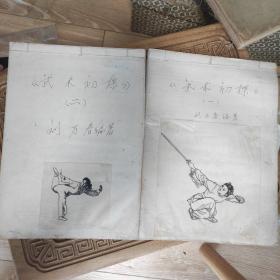 《武术初探》
(二)
刘万春编著
《武术初探》
(一)
刘万春编著